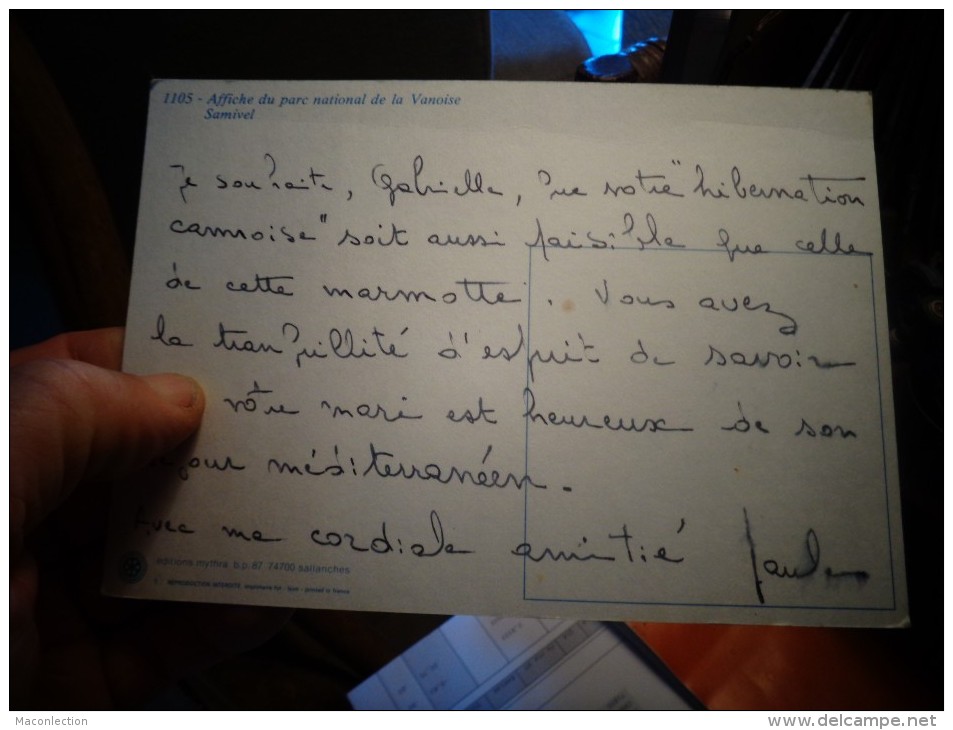 1105 - Affiche du parc national de la Vanoise
Samivel
Je souhaite, Gabrielle, que votre "hibernation
cannoise" soit aussi paisible que celle
de cette marmotte. Vous avez
la tranquillité d'esprit de savoir
votre mari est heureux de son
jour méditerranéen.
Avec ma cordiale amitié
editions mythra b.p. 67 74700 sallanches
REPRODUCTION INTERDITE
Maconlection
www.delcampe.net